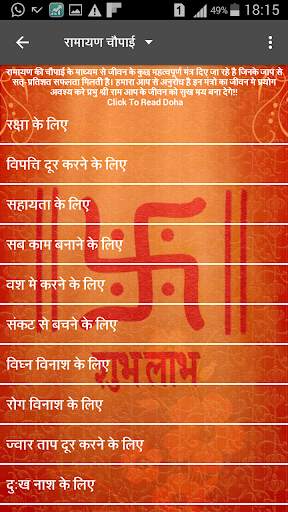 18:15
रामायण चौपाई
रामायण की चौपाई के माध्यम से जीवन के कुछ महत्वपूर्ण मंत्र दिए जा रहे है जिनके जाप से
सत्-प्रतिशत सफलता मिलती है। हमारा आप से अनुरोध है इन मंत्रो का जीवन मे प्रयोग
अवश्य करे प्रभु श्री राम आप के जीवन को सुख मय बना देगे!!
Click To Read Doha
रक्षा के लिए
विपत्ति दूर करने के लिए
सहायता के लिए
सब काम बनाने के लिए
वश मे करने के लिए
संकट से बचने के लिए
विघ्न विनाश के लिए
शुभ लाभ
रोग विनाश के लिए
ज्वार ताप दूर करने के लिए
दुःख नाश के लिए